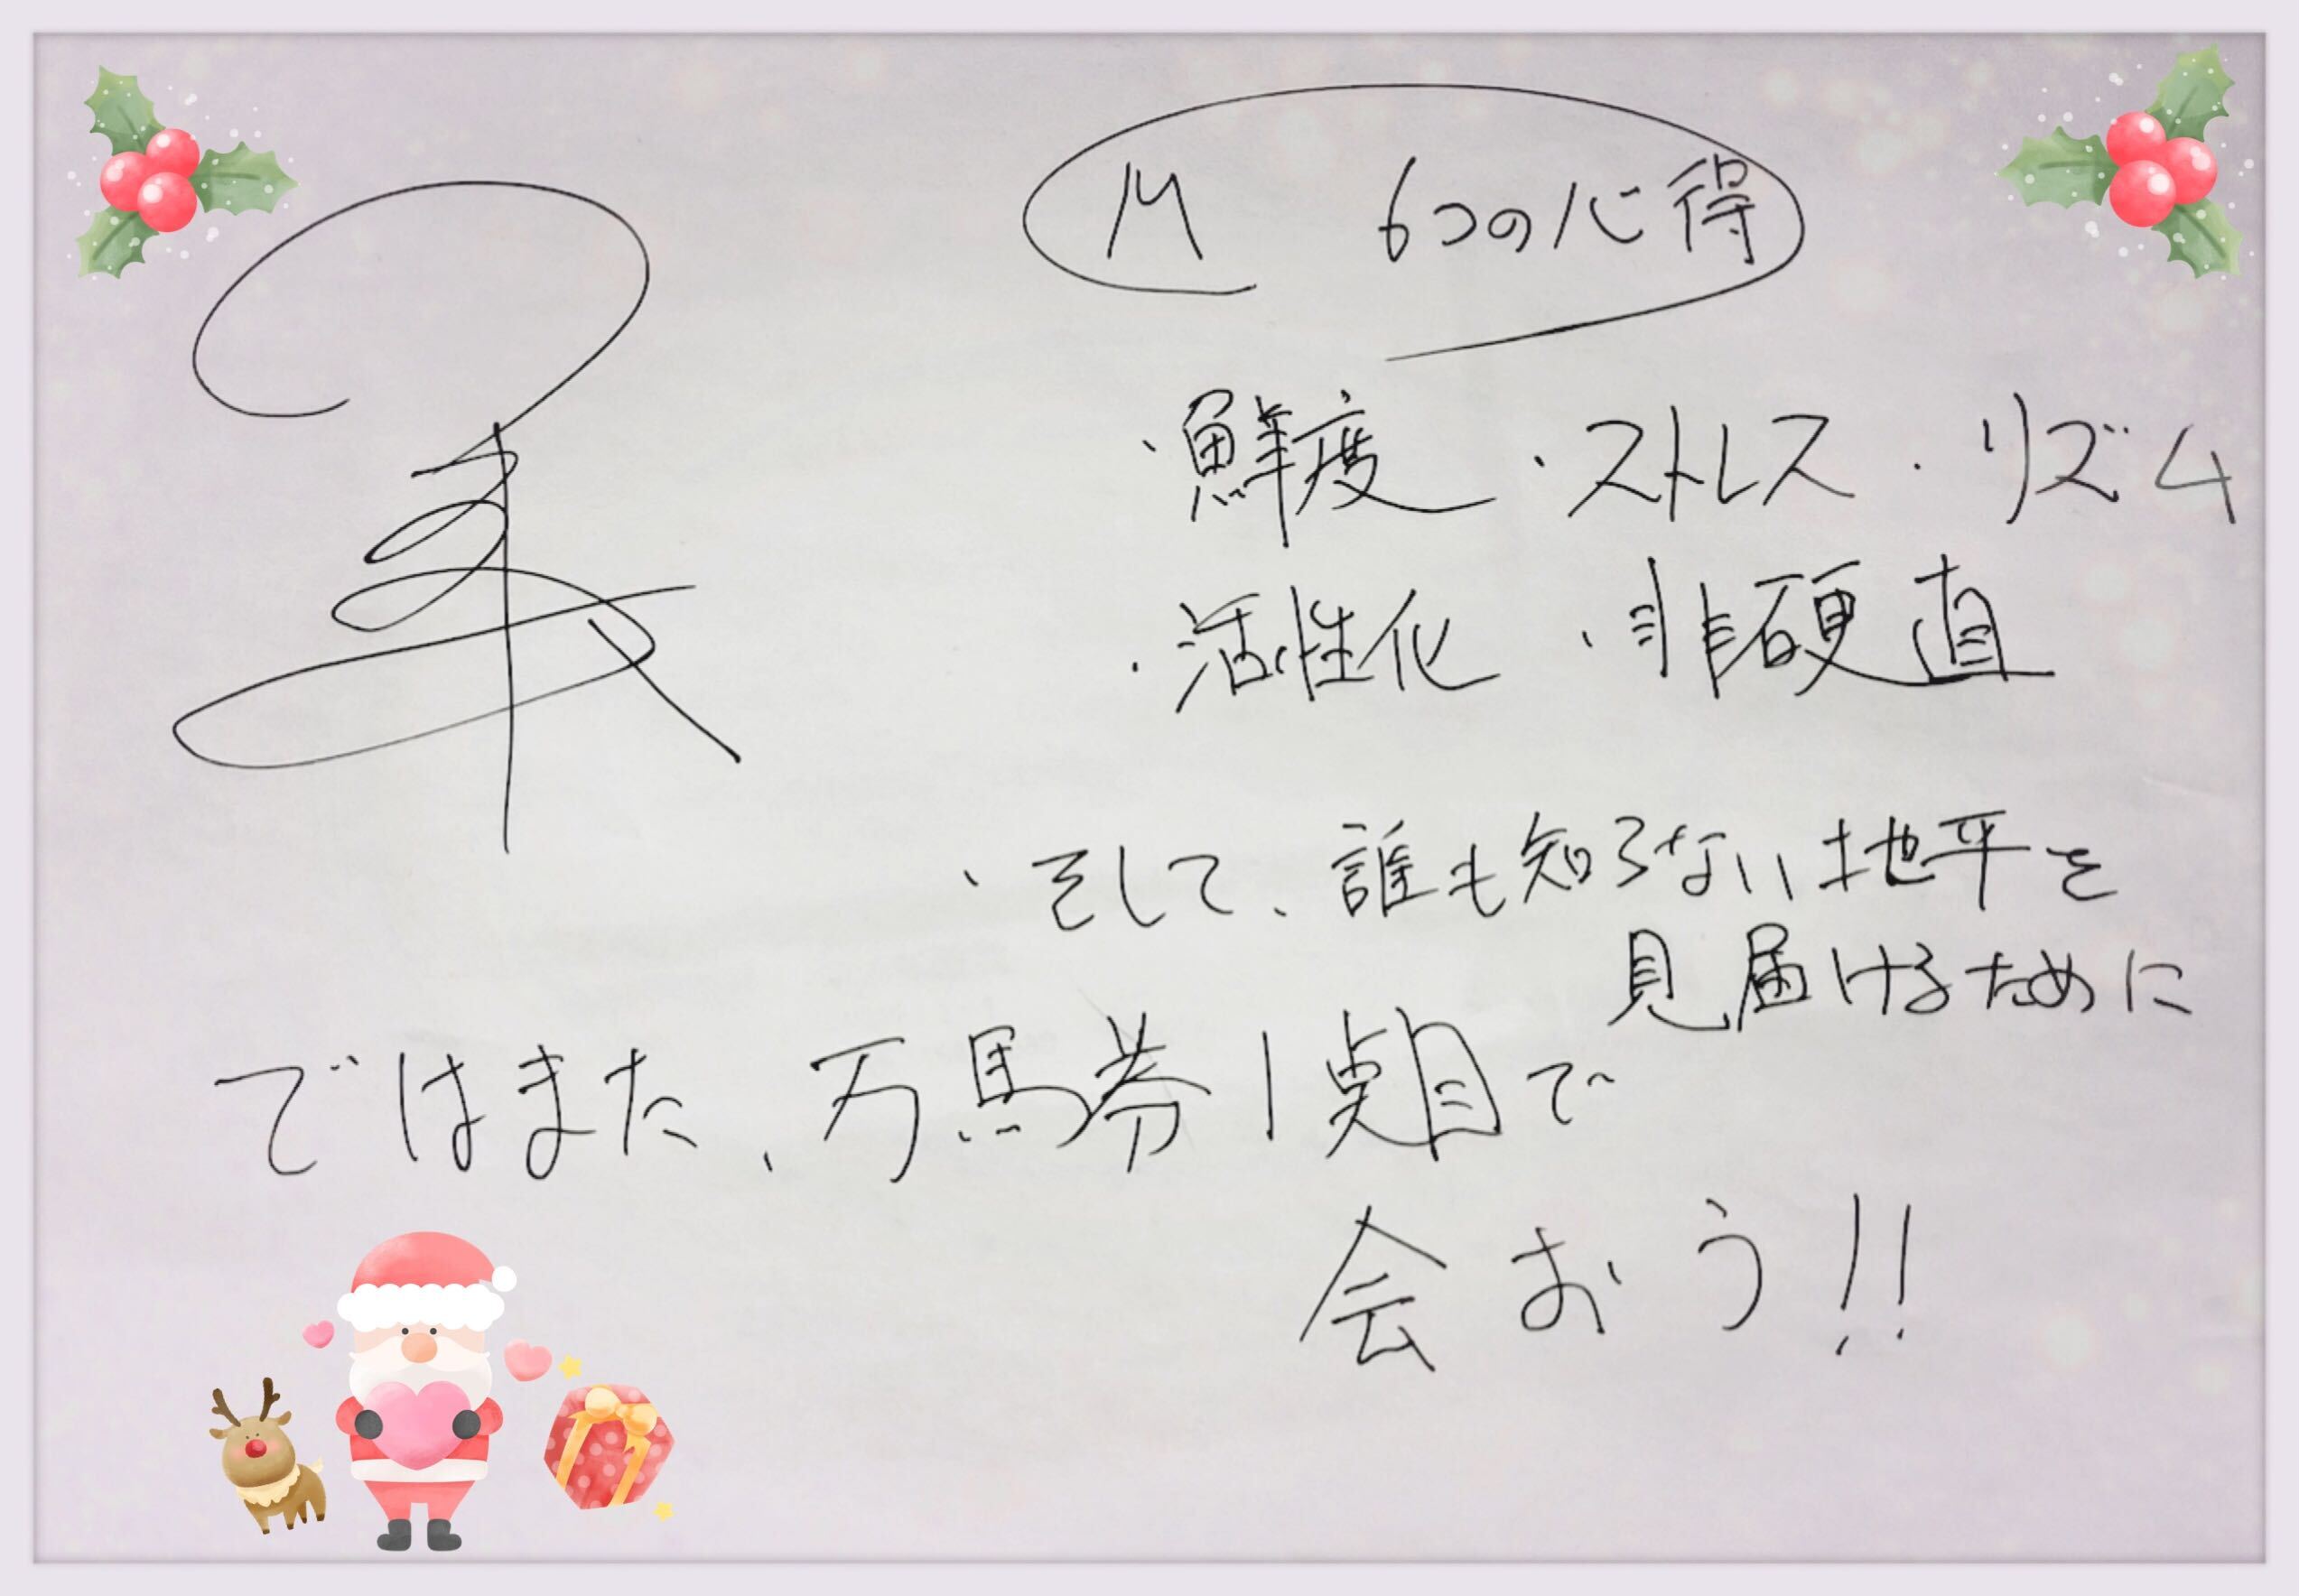 M 6つの心得
・鮮度 ・ストレス ・リズム
・活性化 ・非硬直
・そして、誰も知らない地平を
見届けるために
ではまた、万馬券1点目で
会おう!!